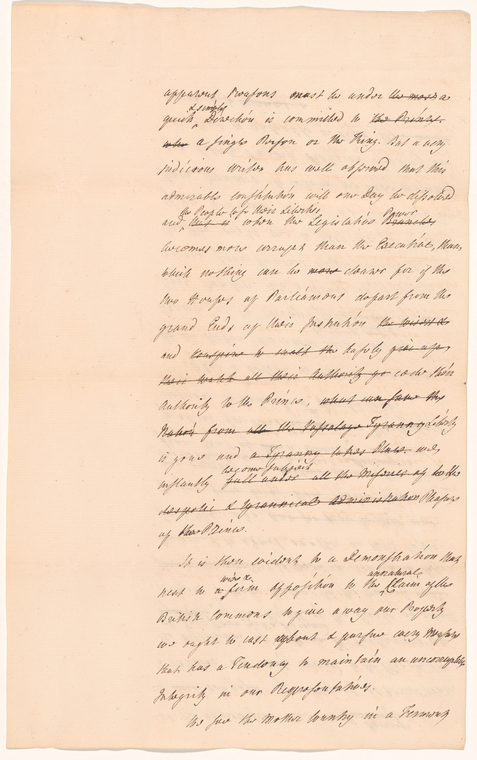 apparent Reasons must be under the most a
& simple
quick Direction is committed to the Prince
who a single Person or the King. But a very
judicious writer has well observed that this
admirable Constitution will one Day be dissolved
the People lose their Liberties Power
and that is when the Legislative Branches
becomes more corrupt than the Executive, than
which nothing can be more clearer for if the
two Houses of Parliament depart from the
grand Ends of their Institution the
and conspire to exalt the basely give up
their all their Authority go cede their
Authority to the Prince, what can save the
Nation from all the Vassalage Tyranny Liberty
is gone and a Tyranny takes Place we
become Subjects
instantly fall under all the Miseries of to the
despotic & tyrannical Administration Pleasure
of the Prince.
It is then evident to a Demonstration that
wise & unnatural
next to a firm opposition to the Claim of the
British Commons to give away our Property
we ought to cast about & pursue every Measure
that has a Tendency to maintain an uncorrupted
Integrity in our Representatives.
We see the Mother Country in a Ferment